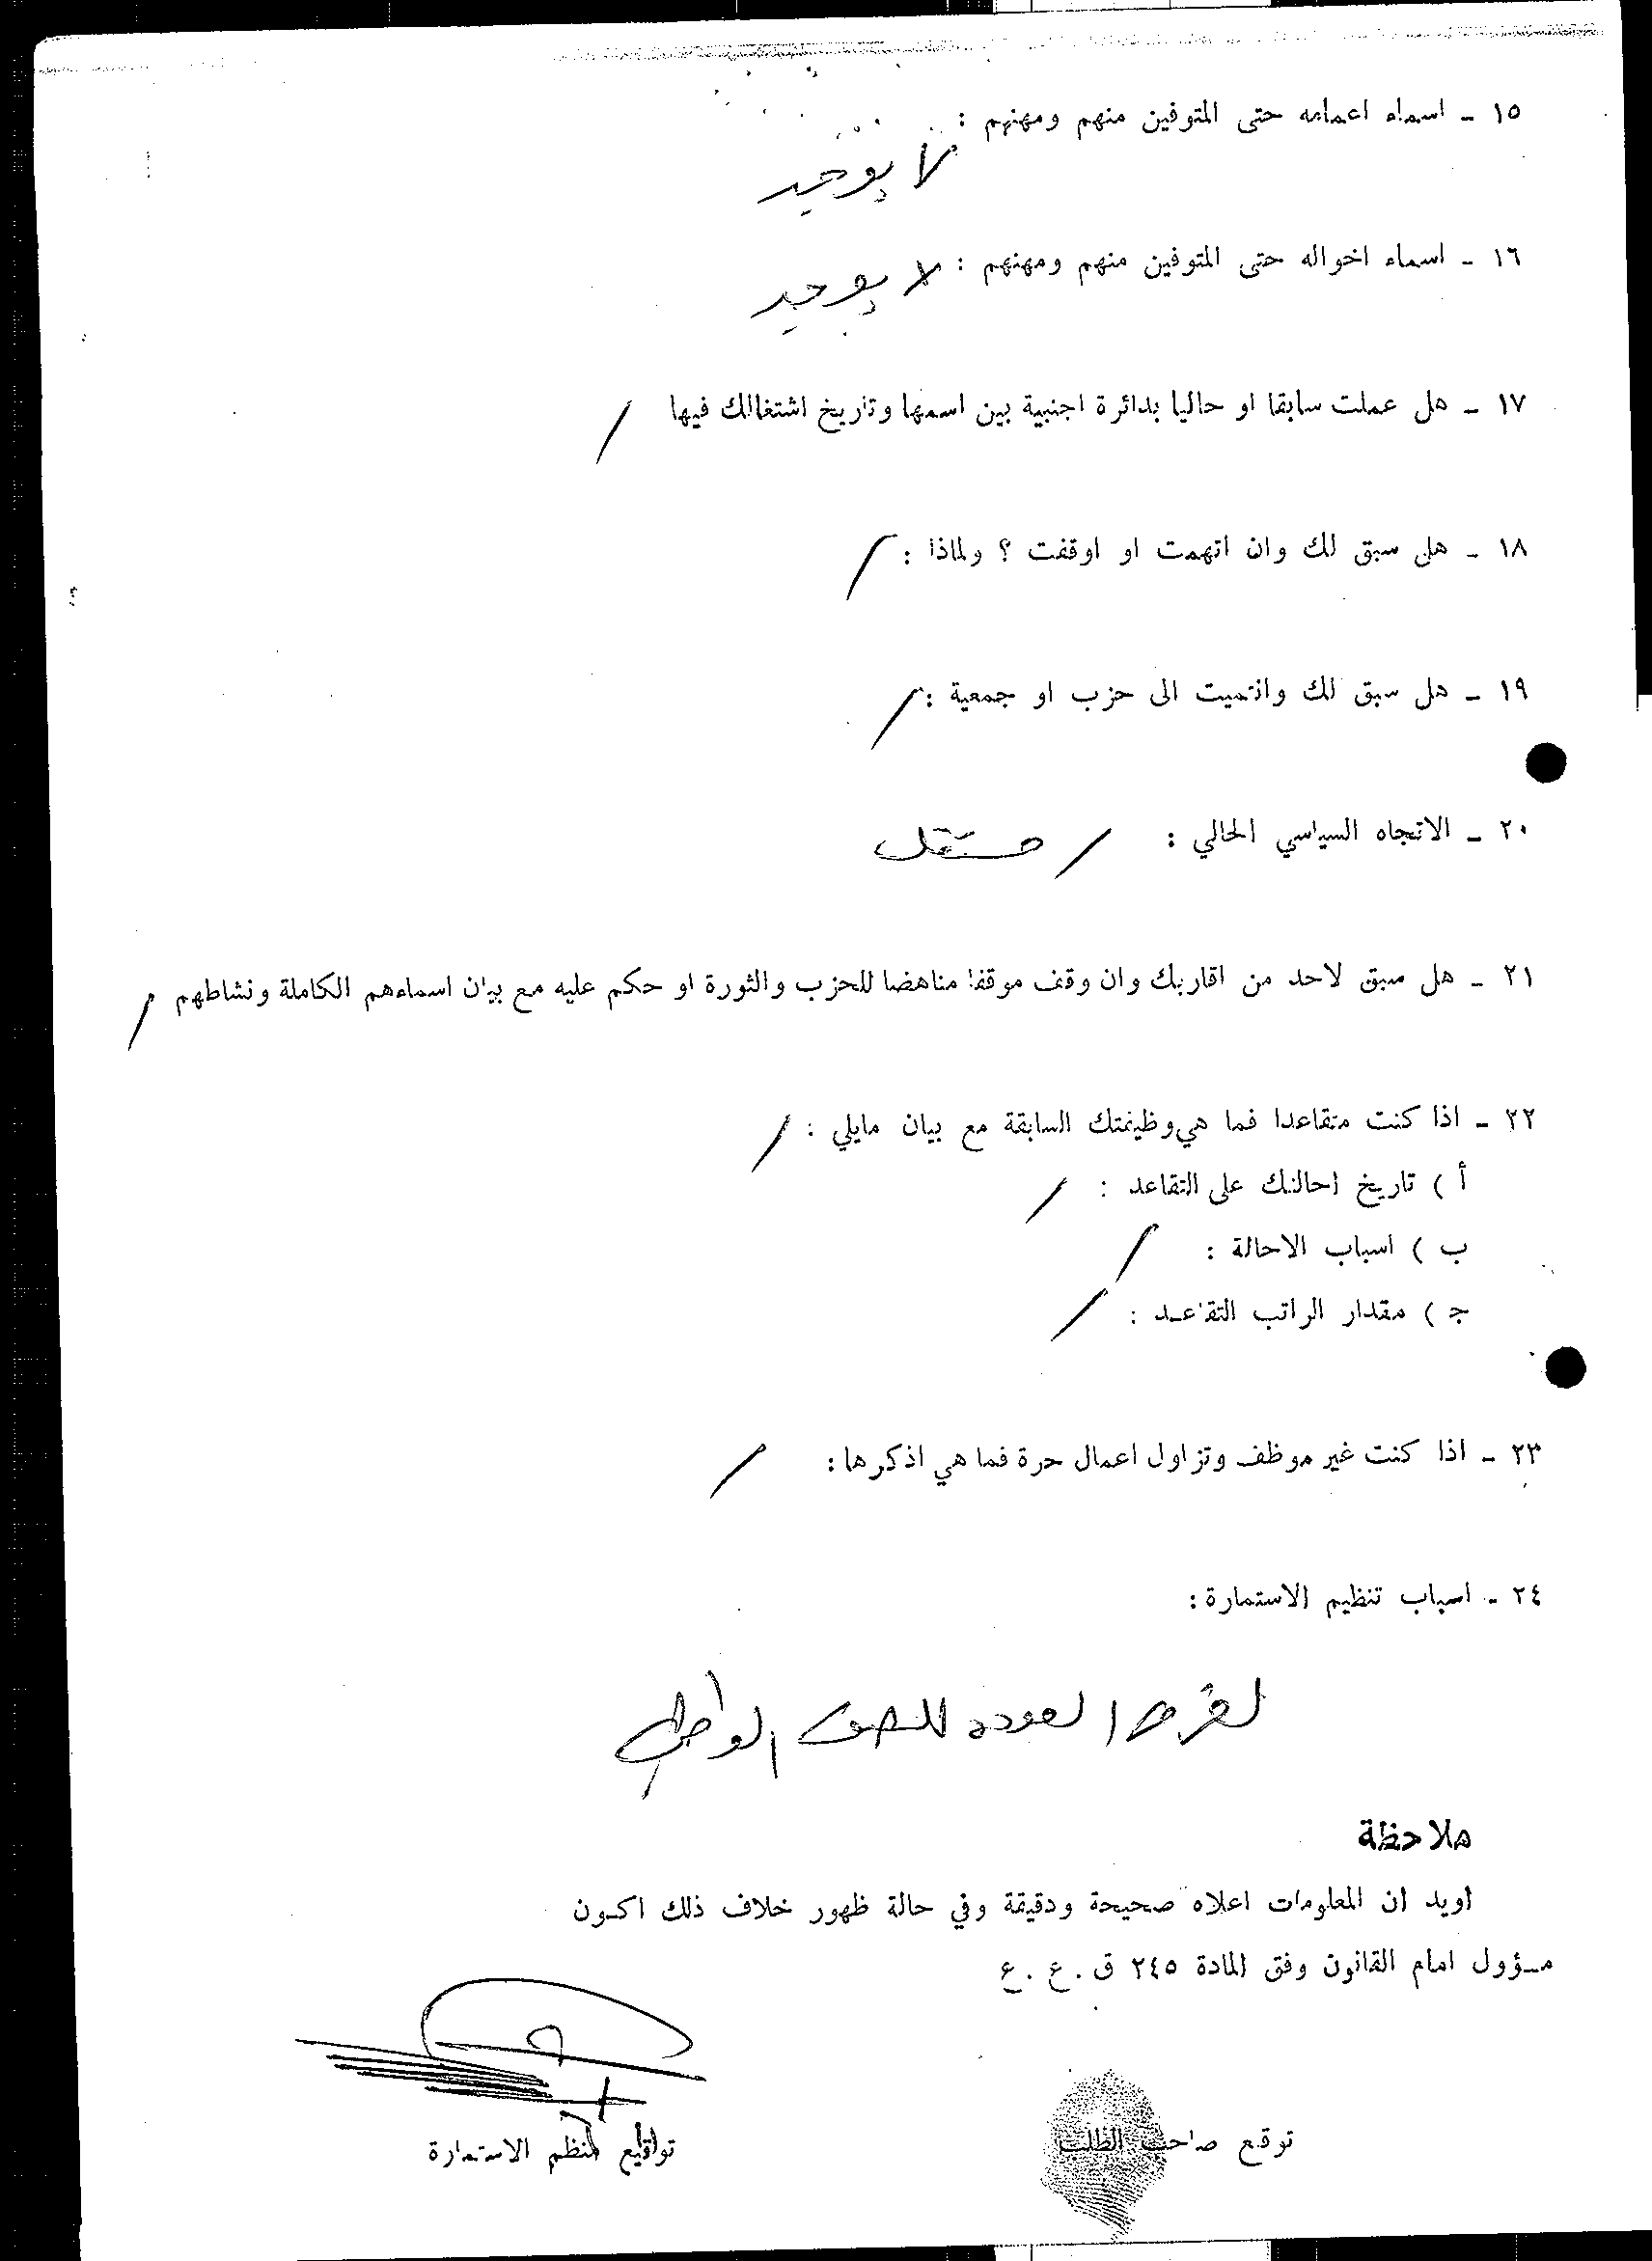 ١٥ - اسماء اعمامه حتى المتوفين منهم ومهنهم :
لا يوجد
١٦ - اسماء اخواله حتى المتوفين منهم ومهنهم : لا يوجد
١٧ - هل عملت سابقا او حاليا بدائرة اجنبية بين اسمها وتاريخ اشتغالك فيها /
١٨ - هل سبق لك وان اتهمت او اوقفت ؟ ولماذا : /
١٩ - هل سبق لك وانتميت الى حزب او جمعية : /
٢٠ - الاتجاه السياسي الحالي : / مستقل
٢١ - هل سبق لاحد من اقاربك وان وقف موقفا مناهضا للحزب والثورة او حكم عليه مع بيان اسماءهم الكاملة ونشاطهم /
٢٢ - اذا كنت متقاعدا فما هي وظيفتك السابقة مع بيان مايلي : /
أ ) تاريخ احالتك على التقاعد : /
ب ) اسباب الاحالة : /
ج ) مقدار الراتب التقاعد : /
٢٣ - اذا كنت غير موظف وتزاول اعمال حرة فما هي اذكرها : /
٢٤ - اسباب تنظيم الاستمارة :
لغرض العودة للصف الوطني
ملاحظة
اويد ان المعلومات اعلاه صحيحة ودقيقة وفي حالة ظهور خلاف ذلك اكون
مسؤول امام القانون وفق المادة ٢٤٥ ق . ع . ع
توقع صاحب الطلب
تواقيع منظم الاستمارة